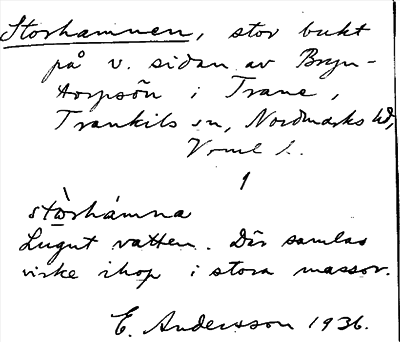 Storhamnen, stor bukt
på v. sidan av Bryn-
torpsön i Trane,
Trankils sn, Nordmarks hd,
Vrml l.
1
stò̲rhámna
Lugnt vatten. Där samlas
virke ihop i stora massor.
E. Andersson 1936.